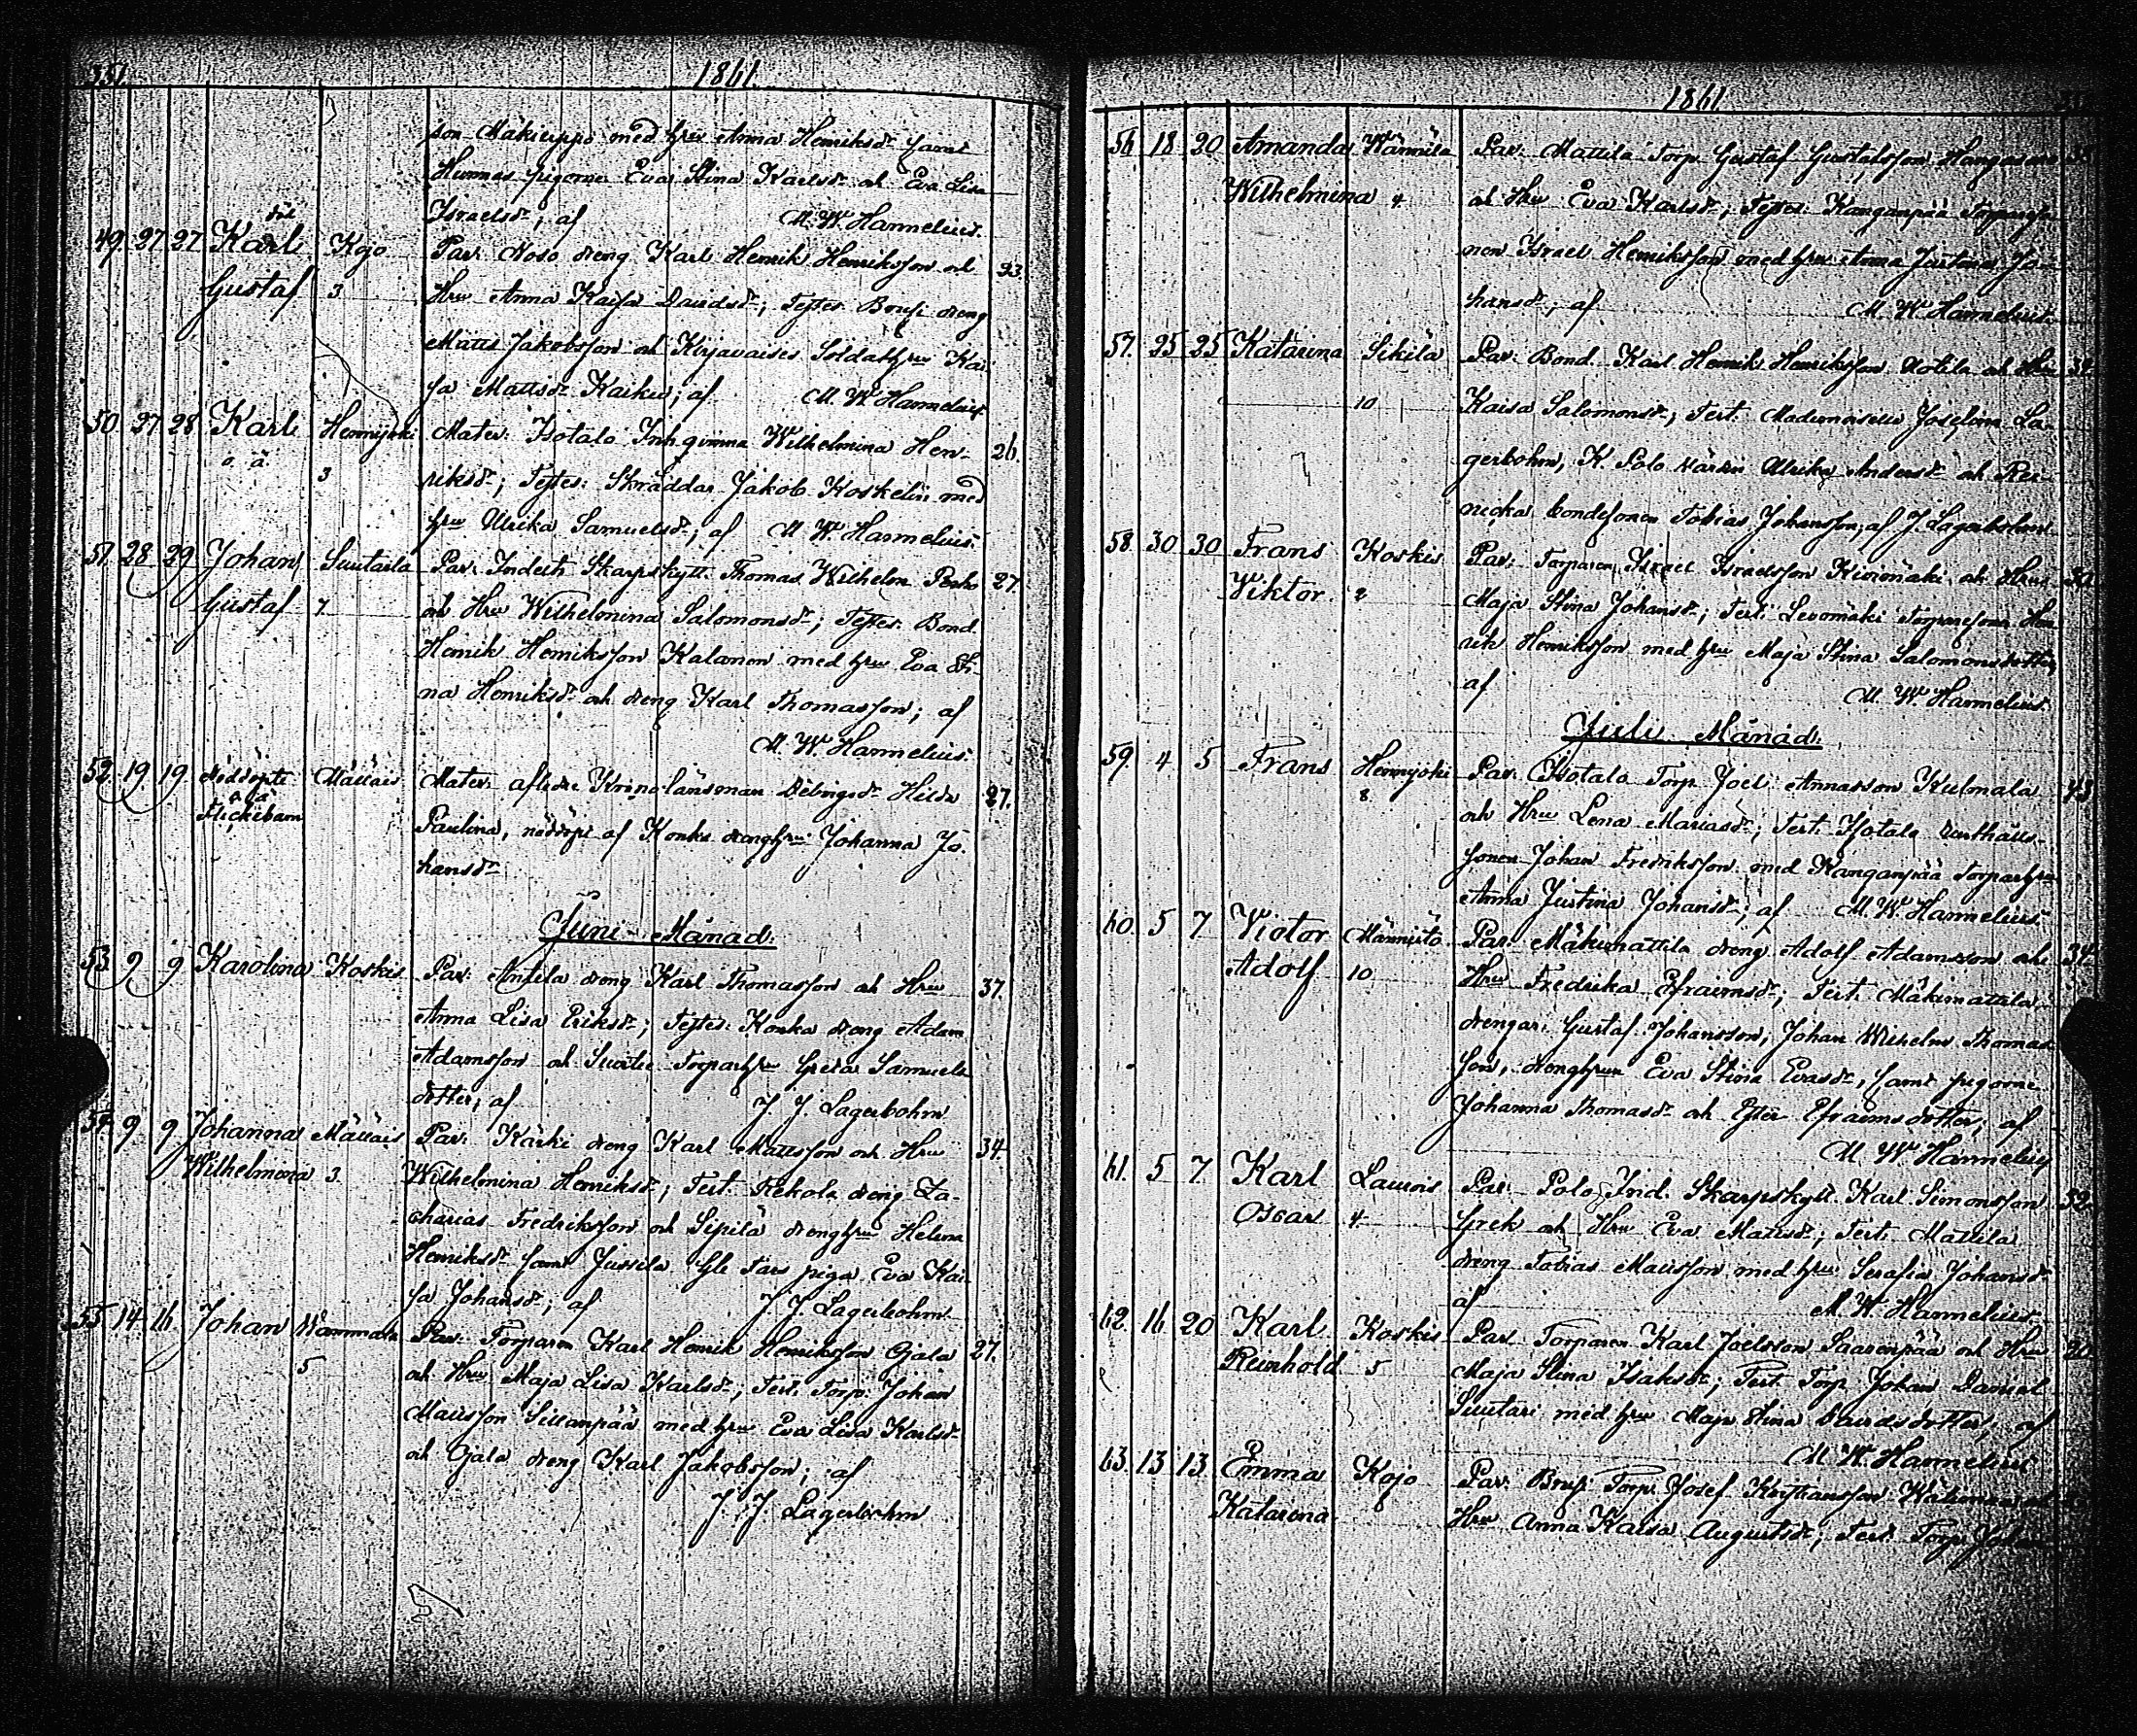 351.
1861.
son Mäkieyppö med hru Anna Henriksdr samt
Hunnas pigorna Eva Stina Karlsdr och Eva Lisa
Israelsdr; af M. W. Hannelius.
49. 27 27 Karl Kojo Par. Noso dreng Karl Henrik Henriksson och 23
Gustaf 3 Hru Anna Kaisa Davidsdr; Testes dreng
Matts Jakobsson och Soldathru Kai-
sa Mattsdr; af M. W. Hannelius
50. 27 28 Karl Hennijoki Mater: Isotalo Inh. qvinna Wilhelmina Hen- 26.
o. ä. 3 riksdr; Testes: Skräddar Jakob Koskelin med
hru Ulrika Samuelsdr; af M. W. Hannelius.
51. 28 29 Johan Suutarla Par. Indelt Skarpskytt. Thomas Wilhelm 27.
Gustaf 7 och Hru Wilhelmina Salomonsdr; Testes: Bond.
Henrik Henriksson Kalanen med hru Eva Sti-
na Henriksdr och dreng Karl Thomasson; af
M. W. Hannelius.
52. 19. 19. nöddöpte Mälläis Mater. aflidne Kronolänsman dr Hilda 27.
o ä
Flickebarn Paulina, nöddöpt af Konka drenghru Johanna Jo-
hansdr
Juni Månad.
53. 9 9 Karolina Koskis Par. Anttila dreng Karl Thomasson och Hru 37.
Anna Lisa Eriksdr; Testes: Konka dreng Adam
Adamsson och Torparhru Greta Samuels
dotter; af J. J. Lagerbohm
54. 9 9. Johanna Mälläis Par. Kärki dreng Karl Mattsson och Hru 34
Wilhelmina 3. Wilhelmina Henriksdr; Test. Rekola dreng Za-
charias Fredriksson och Sipilä drenghru Helena
Henriksdr samt Jussila piga Eva Kai-
sa Johansdr; af J. J. Lagerbohm
55. 14 16. Johan Wammala Par. Torparen Karl Henrik Henriksson Ojala 27.
5 och Hru Maja Lisa Karlsdr; Test. Torp. Johan
Mattsson Sillanpää med hru Eva Lisa Karlsdr
och Ojala dreng Karl Jakobsson; af
J. J. Lagerbohm
1861
56 18 20 Amanda Par. Mattila Torp. Gustaf Gustafsson
Wilhelmina 4 och Hru Eva Karlsdr; Testes: Kanganpää
Israel Henriksson med hru Anna Justina Jo-
hansdr; af M. W. Hannelius.
57. 25 25 Katarina Sikilä Par. Bond. Karl Henrik Henriksson Uotila och Hru 32.
10 Kaisa Salomonsdr; Test. Mademoiselle Josefina La-
gerbohm, K. Polo värdin Ulrika Andersdr och
bondesonen Tobias Johansson; af J. Lagerbohm
58 30 30 Frans Koskis Par. Torparen Israel Israelsson Kivimäki och Hru
Viktor. 2 Maja Stina Johansdr; Test. Levomäki Torparesonen Hen
rik Henriksson med hru Maja Stina Salomonsdotter,
af M. W. Hannelius.
Juli Månad.
59 4 5 Frans Hennijoki Par. Isotalo Torp. Joel Annasson Kulmala 43
8. och Hru Lena Mariasdr; Test. Isotalo
sonen Johan Fredriksson med Kanganpää Torparhru
Anna Justina Johansdr; af M. W. Hannelius.
60. 5 7 Victor Männistö Par. Mäkimattila dreng Adolf Adamsson och 34
Adolf 10 Hru Fredrika Efraimsdr; Test. Mäkimattila
drengar: Gustaf Johansson, Johan Wilhelm Thomas
son, drenghrun Eva Stina Evasdr, samt pigorna
Johanna Thomasdr och Ester Efraimsdotter; af
M. W. Hannelius
61. 5 7. Karl Laurois Par. Polo Ind. Skarpskytt. Karl Simonsson 32.
Oscar 4 Grek och Hru Eva Mattsdr; Test. Mattila
dreng Tobias Mattsson med hru Serafia Johansdr
af M. W. Hannelius.
62. 16 20 Karl Koskis Par. Torparen Karl Joelsson Saarenpää och Hru 20
Reinhold 5 Maja Stina Isaksdr; Test. Torp. Johan Daniel
Suutari med hru Maja Stina Davidsdotter; af
M. W. Hannelius
63. 13 13. Emma Kojo Par. Torp. Josef Kristiansson
Katarina. Hru Anna Kaisa Augustsdr; Test. Torp. Johan